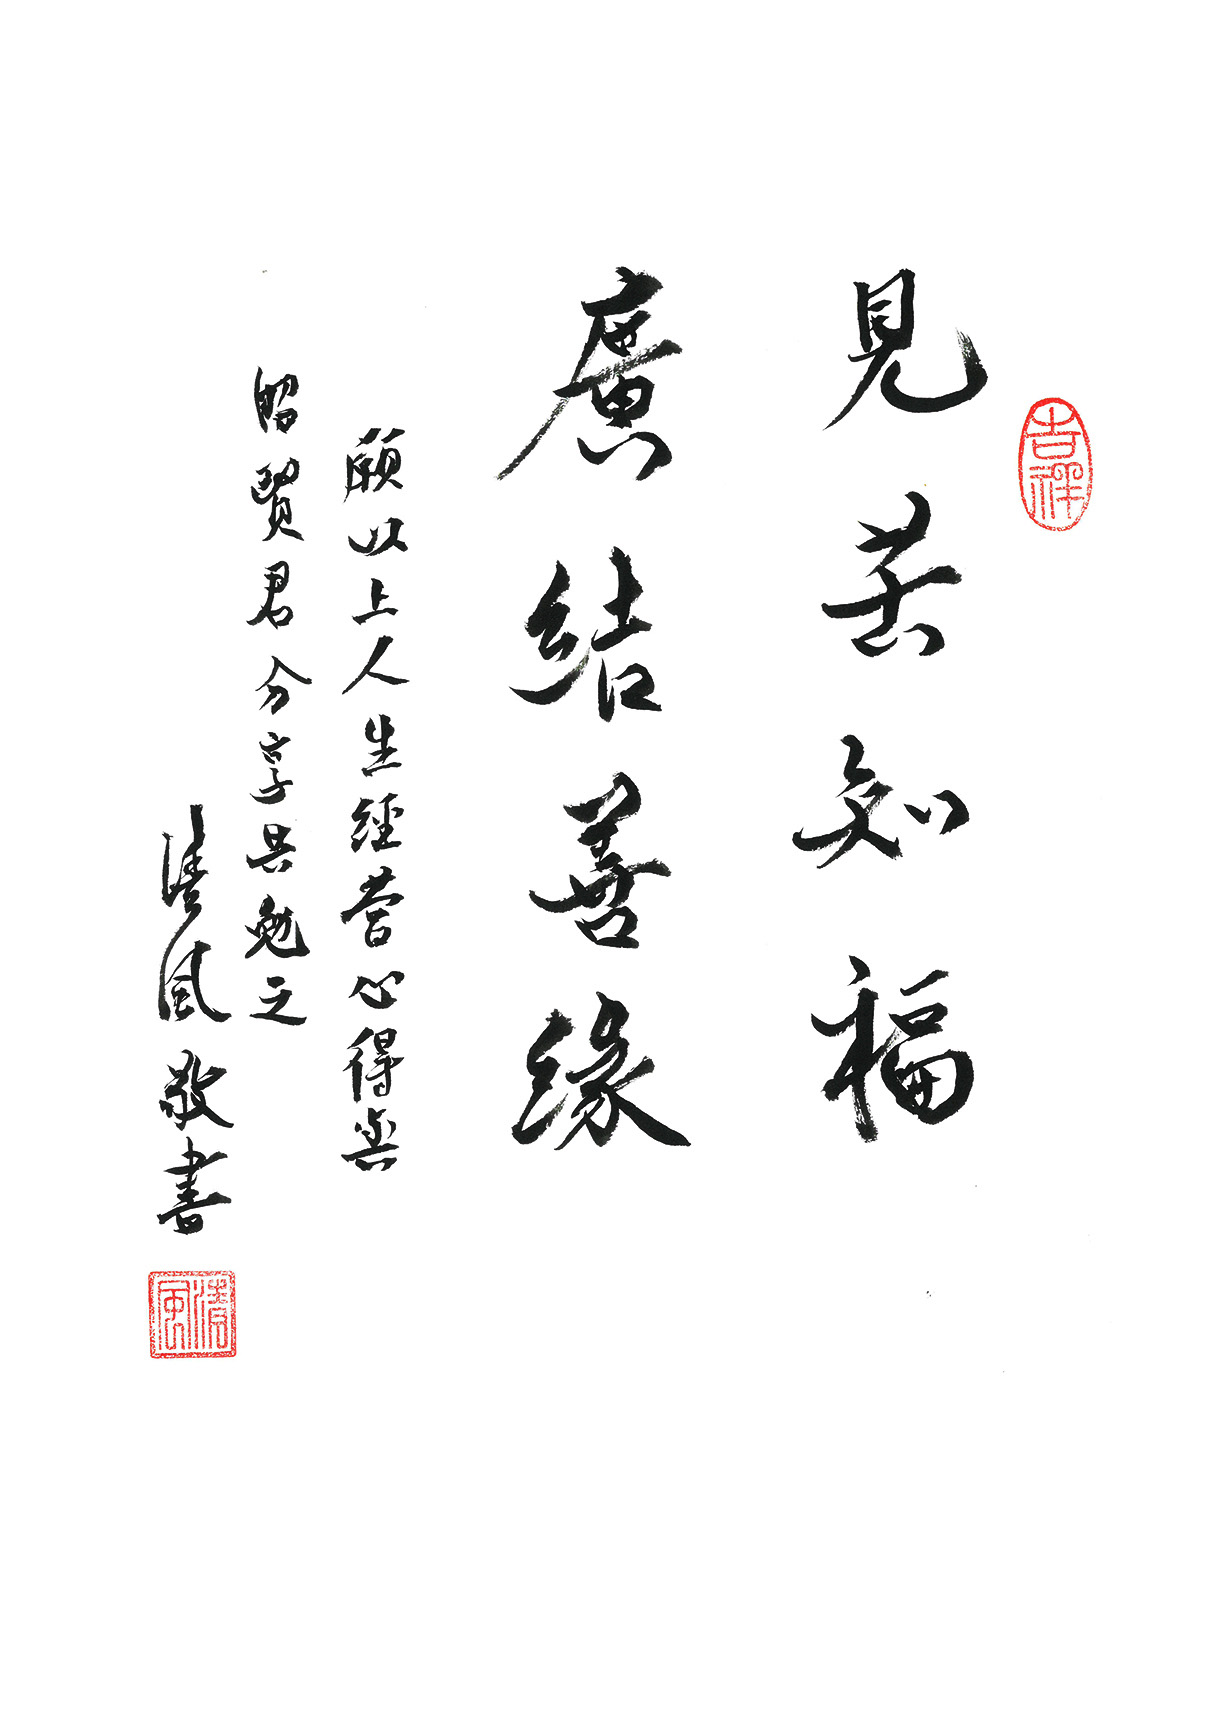 吉祥
見苦知福
廣結善緣
願以上人生經營心得與
昭賢君分享共勉之
清風敬書
清風